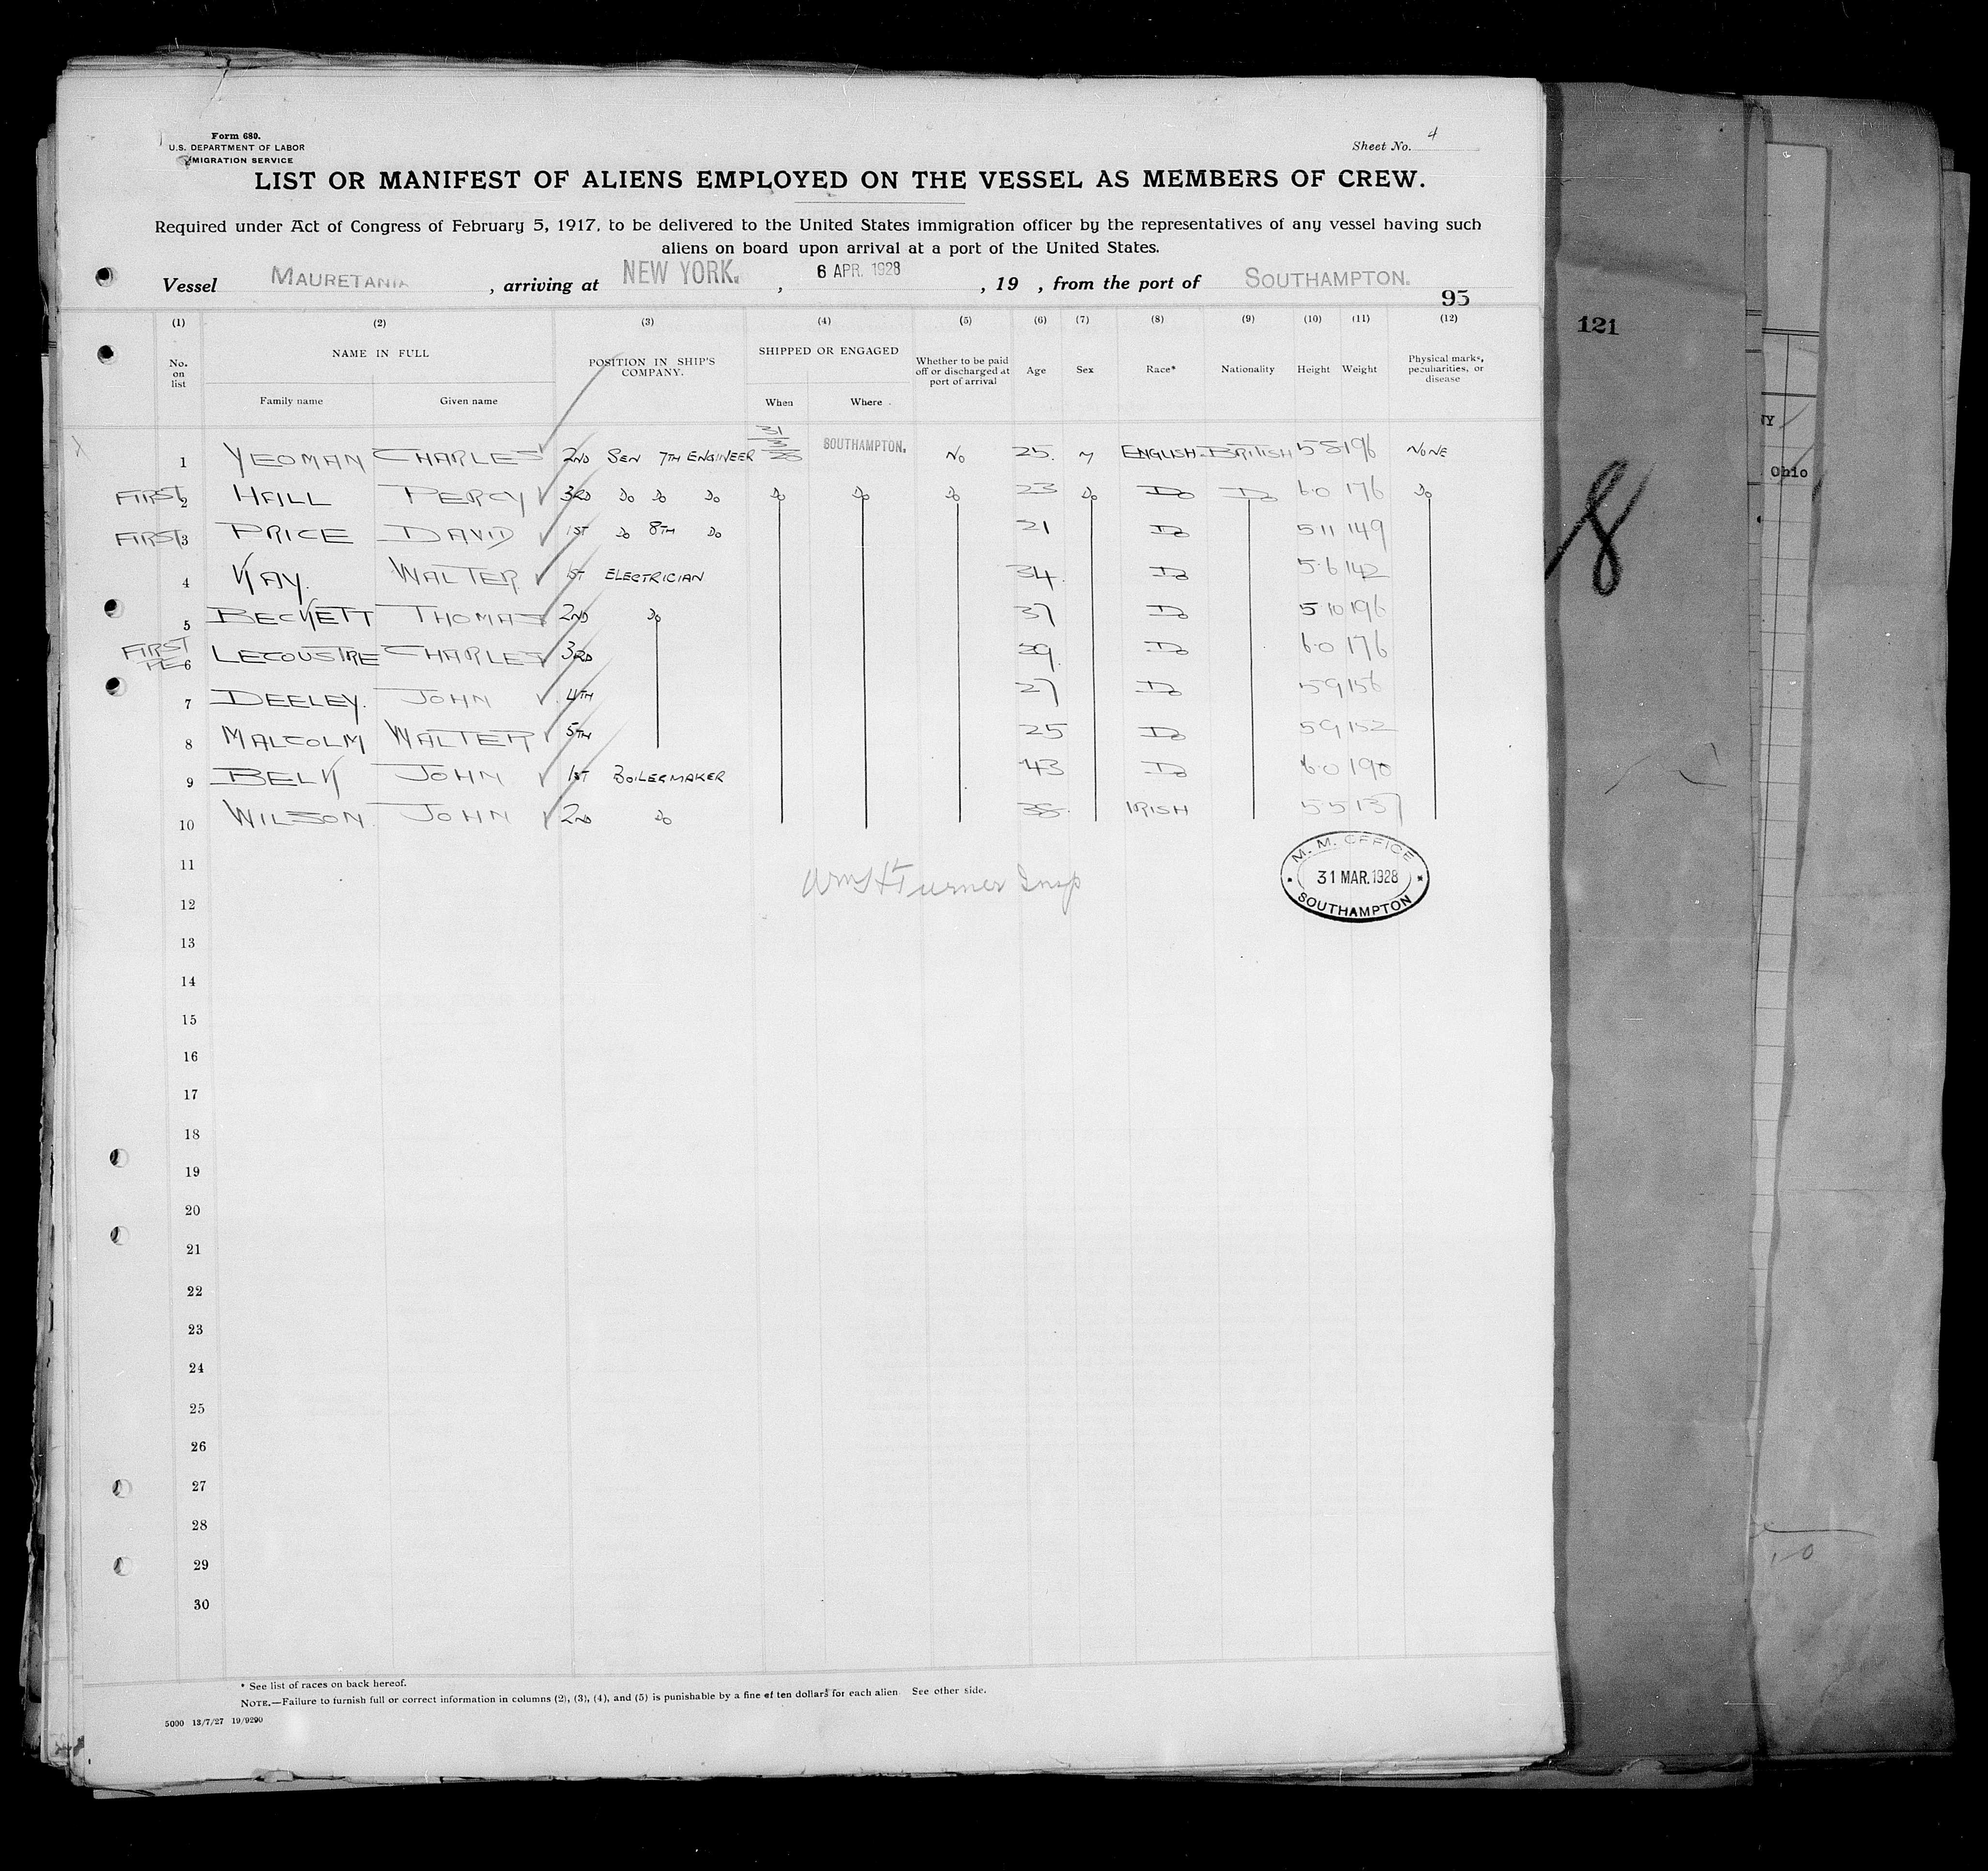 Form 680.
U.S. DEPARTMENT OF LABOR
MIGRATION SERVICE
Sheet No. 4
LIST OR MANIFEST OF ALIENS EMPLOYED ON THE VESSEL AS MEMBERS OF CREW.
Required under Act of Congress of February 5, 1917, to be delivered to the United States immigration officer by the representatives of any vessel having such
aliens on board upon arrival at a port of the United States.
Vessel MAURETANIA, arriving at NEW YORK. , 6 APR. 1928 , 19 , from the port of SOUTHAMPTON.
95
121
(1) (2) (3) (4) (5) (6) (7) (8) (9) (10) (11) (12)
No. on list NAME IN FULL POSITION IN SHIP'S COMPANY. SHIPPED OR ENGAGED Whether to be paid off or discharged at port of arrival Age Sex Race* Nationality Height Weight Physical marks, peculiarities, or disease
Family name Given name When Where
1 YEOMAN CHARLES 2ND SEN 7TH ENGINEER 31/3/28 SOUTHAMPTON. NO 25. M ENGLISH BRITISH 5 8 196 NONE
FIRST 2 HALL PERCY 3RD DO DO DO DO DO DO 23 DO DO DO 6.0 176 DO
FIRST 3 PRICE DAVID 1ST DO 8TH DO 21 DO 5 11 149
4 KAY. WALTER 1ST ELECTRICIAN 34. DO 5.6 142
5 BECKETT THOMAS 2ND DO 37 DO 5 10 196
FIRST
6 LECOUSTRE CHARLES 3RD 29. DO 6.0 176
7 DEELEY. JOHN 4TH 27 DO 5 9 156
8 MALCOLM WALTER 5TH 25 DO 5 9 152
9 BELK JOHN 1ST BOILERMAKER 43 DO 6.0 190
10 WILSON JOHN 2ND DO 38. IRISH 5 5 137
8
NY
Ohio
11
Turner Insp
M. M. OFFICE
31 MAR. 1928
SOUTHAMPTON
12
13
14
15
16
17
18
19
20
21
22
23
24
25
26
27
28
29
30
* See list of races on back hereof.
NOTE.—Failure to furnish full or correct information in columns (2), (3), (4), and (5) is punishable by a fine of ten dollars for each alien See other side.
5000 13/7/27 19/9290